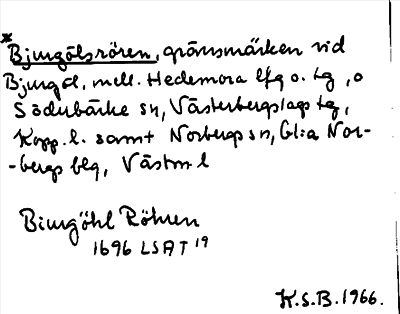 * Bjurgölsrören, gränsmärken vid
Bjurgöl, mell. Hedemora lfg o. tg, o
Söderbärke sn, Västerbergslags tg,
Kopp. l. samt Norbergs sn, Gla Nor-
-bergs blg, Västm l
Biurgöhl Röhren
1696 LSAT 19
K.S.B. 1966.